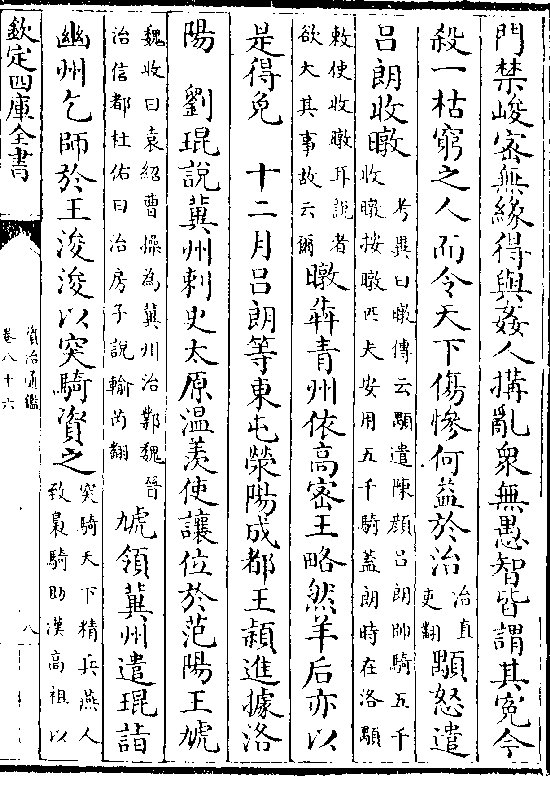 門禁峻密無緣得與姦人搆亂衆無愚智皆謂其寃今
殺一枯窮之人而令天下傷慘何益於治治直吏翻顒怒遣
呂朗收暾考異曰暾傳云顒遣陳顔呂朗帥騎五千收暾按暾匹夫安用五千騎蓋朗時在洛顒
敕使收暾耳說者欲大其事故云爾暾犇青州依高密王略然羊后亦以
是得免　十二月呂朗等東屯滎陽成都王穎進據洛
陽　劉琨說冀州刺史太原温羡使讓位於范陽王虓
魏收曰袁紹曹操為冀州治鄴魏晉治信都杜佑曰治房子說輸芮翻虓領冀州遣琨詣
幽州乞師於王浚浚以突騎資之突騎天下精兵燕人致梟騎助漢高祖以
欽定四庫全書
資治通鑑
卷八十六
八